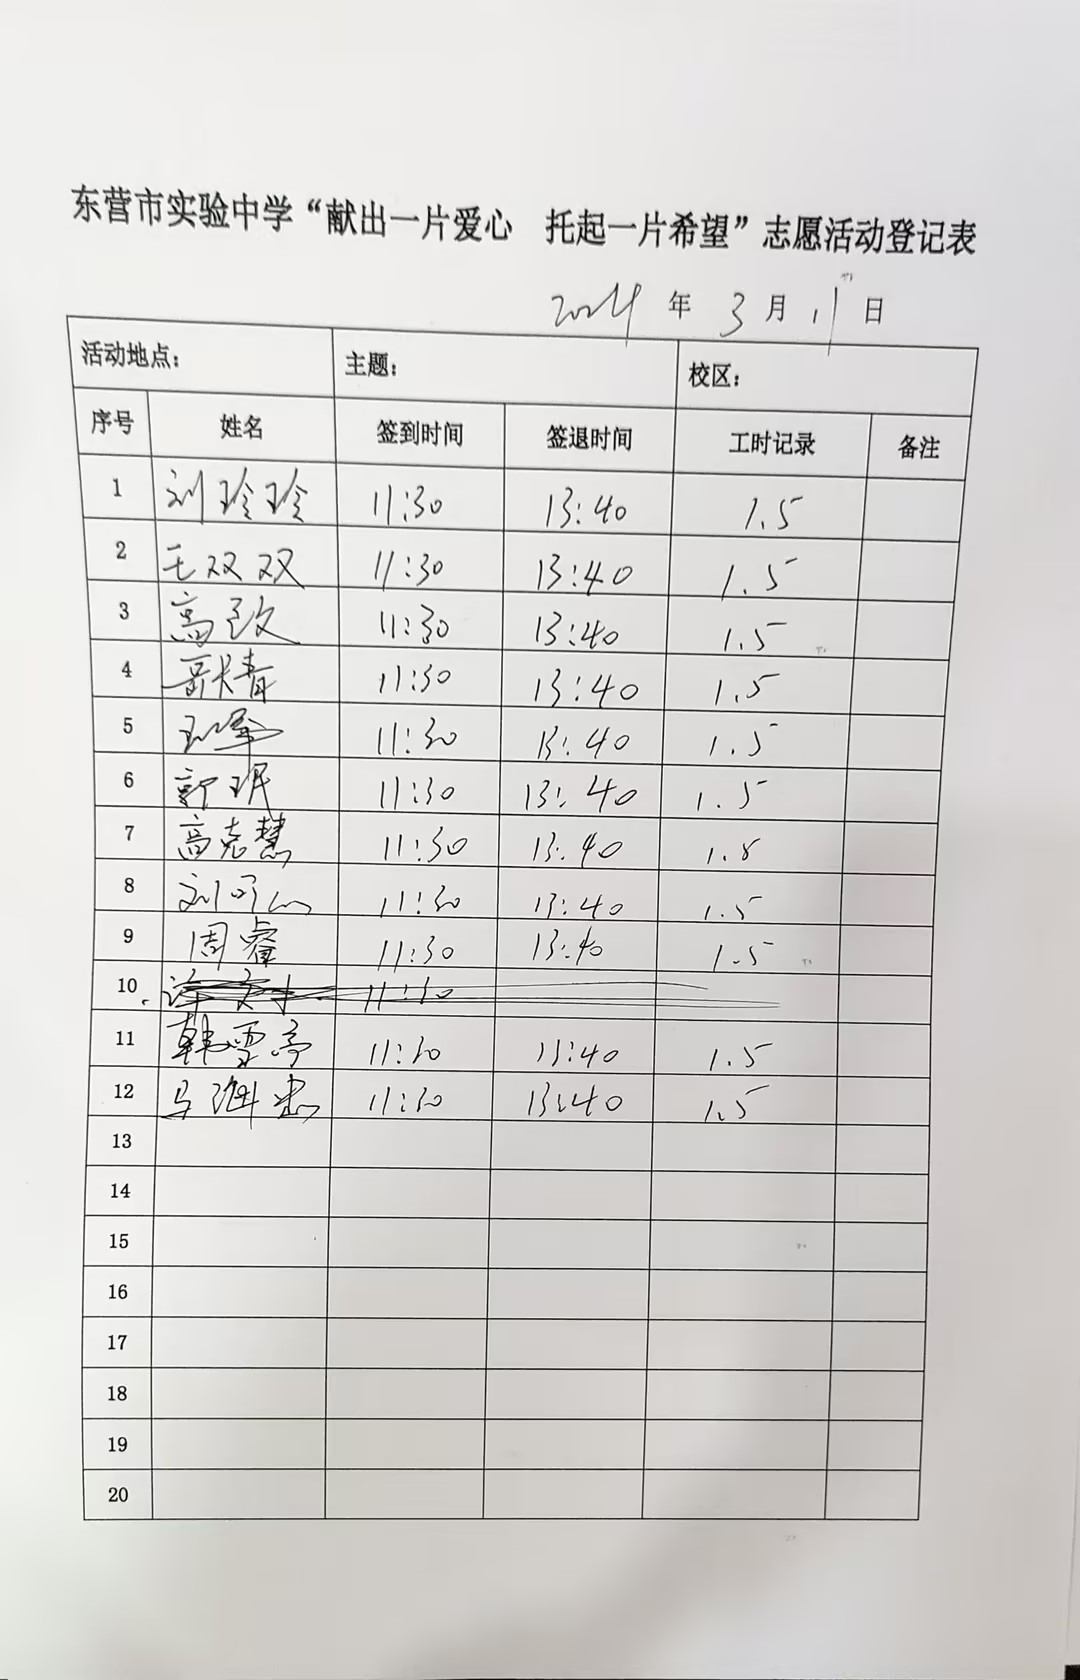 东营市实验中学“献出一片爱心 托起一片希望”志愿活动登记表
2024 年 3 月 11 日
活动地点: 主题: 校区:
序号 姓名 签到时间 签退时间 工时记录 备注
1 刘玲玲 11:30 13:40 1.5
2 王双双 11:30 13:40 1.5
3 高政 11:30 13:40 1.5
4 11:30 13:40 1.5
5 11:30 13:40 1.5
6 郭珉 11:30 13:40 1.5
7 高志慧 11:30 13:40 1.5
8 刘可心 11:30 13:40 1.5
9 周睿 11:30 13:40 1.5
10 11:30
11 韩雪亭 11:30 13:40 1.5
12 马海忠 11:30 13:40 1.5
13
14
15
16
17
18
19
20